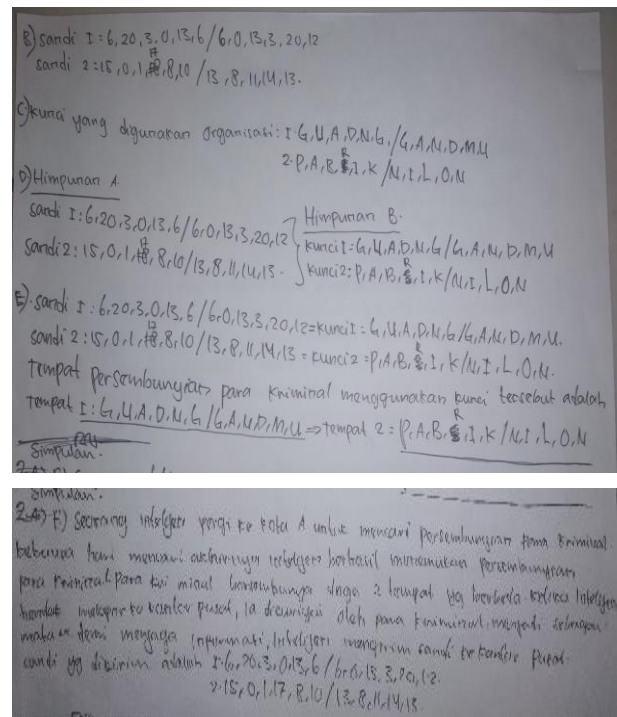 B) Sandi I : 6, 20, 3, 0, 13, 6 / 6, 0, 13, 3, 20, 12
Sandi 2 : 15, 0, 1, 17, 8, 10 / 13, 8, 11, 14, 13.
C) Kunci yang digunakan Organisasi : I. G, U, A, D, N, G, / G, A, N, D, M, U
2. P, A, B, R, I, K / N, I, L, O, N
D) Himpunan A
Himpunan B.
Sandi I : 6, 20, 3, 0, 13, 6 / 6, 0, 13, 3, 20, 12
Kunci I : G, U, A, D, N, G / G, A, N, D, M, U
Sandi 2 : 15, 0, 1, 17, 8, 10 / 13, 8, 11, 14, 13.
Kunci 2 : P, A, B, R, I, K / N, I, L, O, N
E). Sandi I : 6, 20, 3, 0, 13, 6 / 6, 0, 13, 3, 20, 12 = Kunci I : G, U, A, D, N, G / G, A, N, D, M, U.
Sandi 2 : 15, 0, 1, 17, 8, 10 / 13, 8, 11, 14, 13 = Kunci 2 = P, A, B, R, I, K / N, I, L, O, N.
Tempat Persembunyian para Kriminal menggunakan kunci tersebut adalah
tempat I : G, U, A, D, N, G / G, A, N, D, M, U => tempat 2 : P, A, B, R, I, K / N, I, L, O, N
Simpulan.
Simpulan.
F) Seorang intelijen pergi ke kota A untuk mencari persembunyian para kriminal.
beberapa hari mencari akhirnya intelijen berhasil menemukan Persembunyian
para kriminal. Para kriminal bersembunyi 2 tempat yg berbeda ketika Intelijen
hendak melapor ke kantor pusat, ia dicurigai oleh para kriminal menjadi sebagai
mata-mata demi menjaga informasi, Intelijen mengirim sandi ke kantor Pusat.
sandi yg dikirim adalah I. 6, 20, 3, 0, 13, 6 / 6, 0, 13, 3, 20, 12.
2. 15, 0, 1, 17, 8, 10 / 13, 8, 11, 14, 13